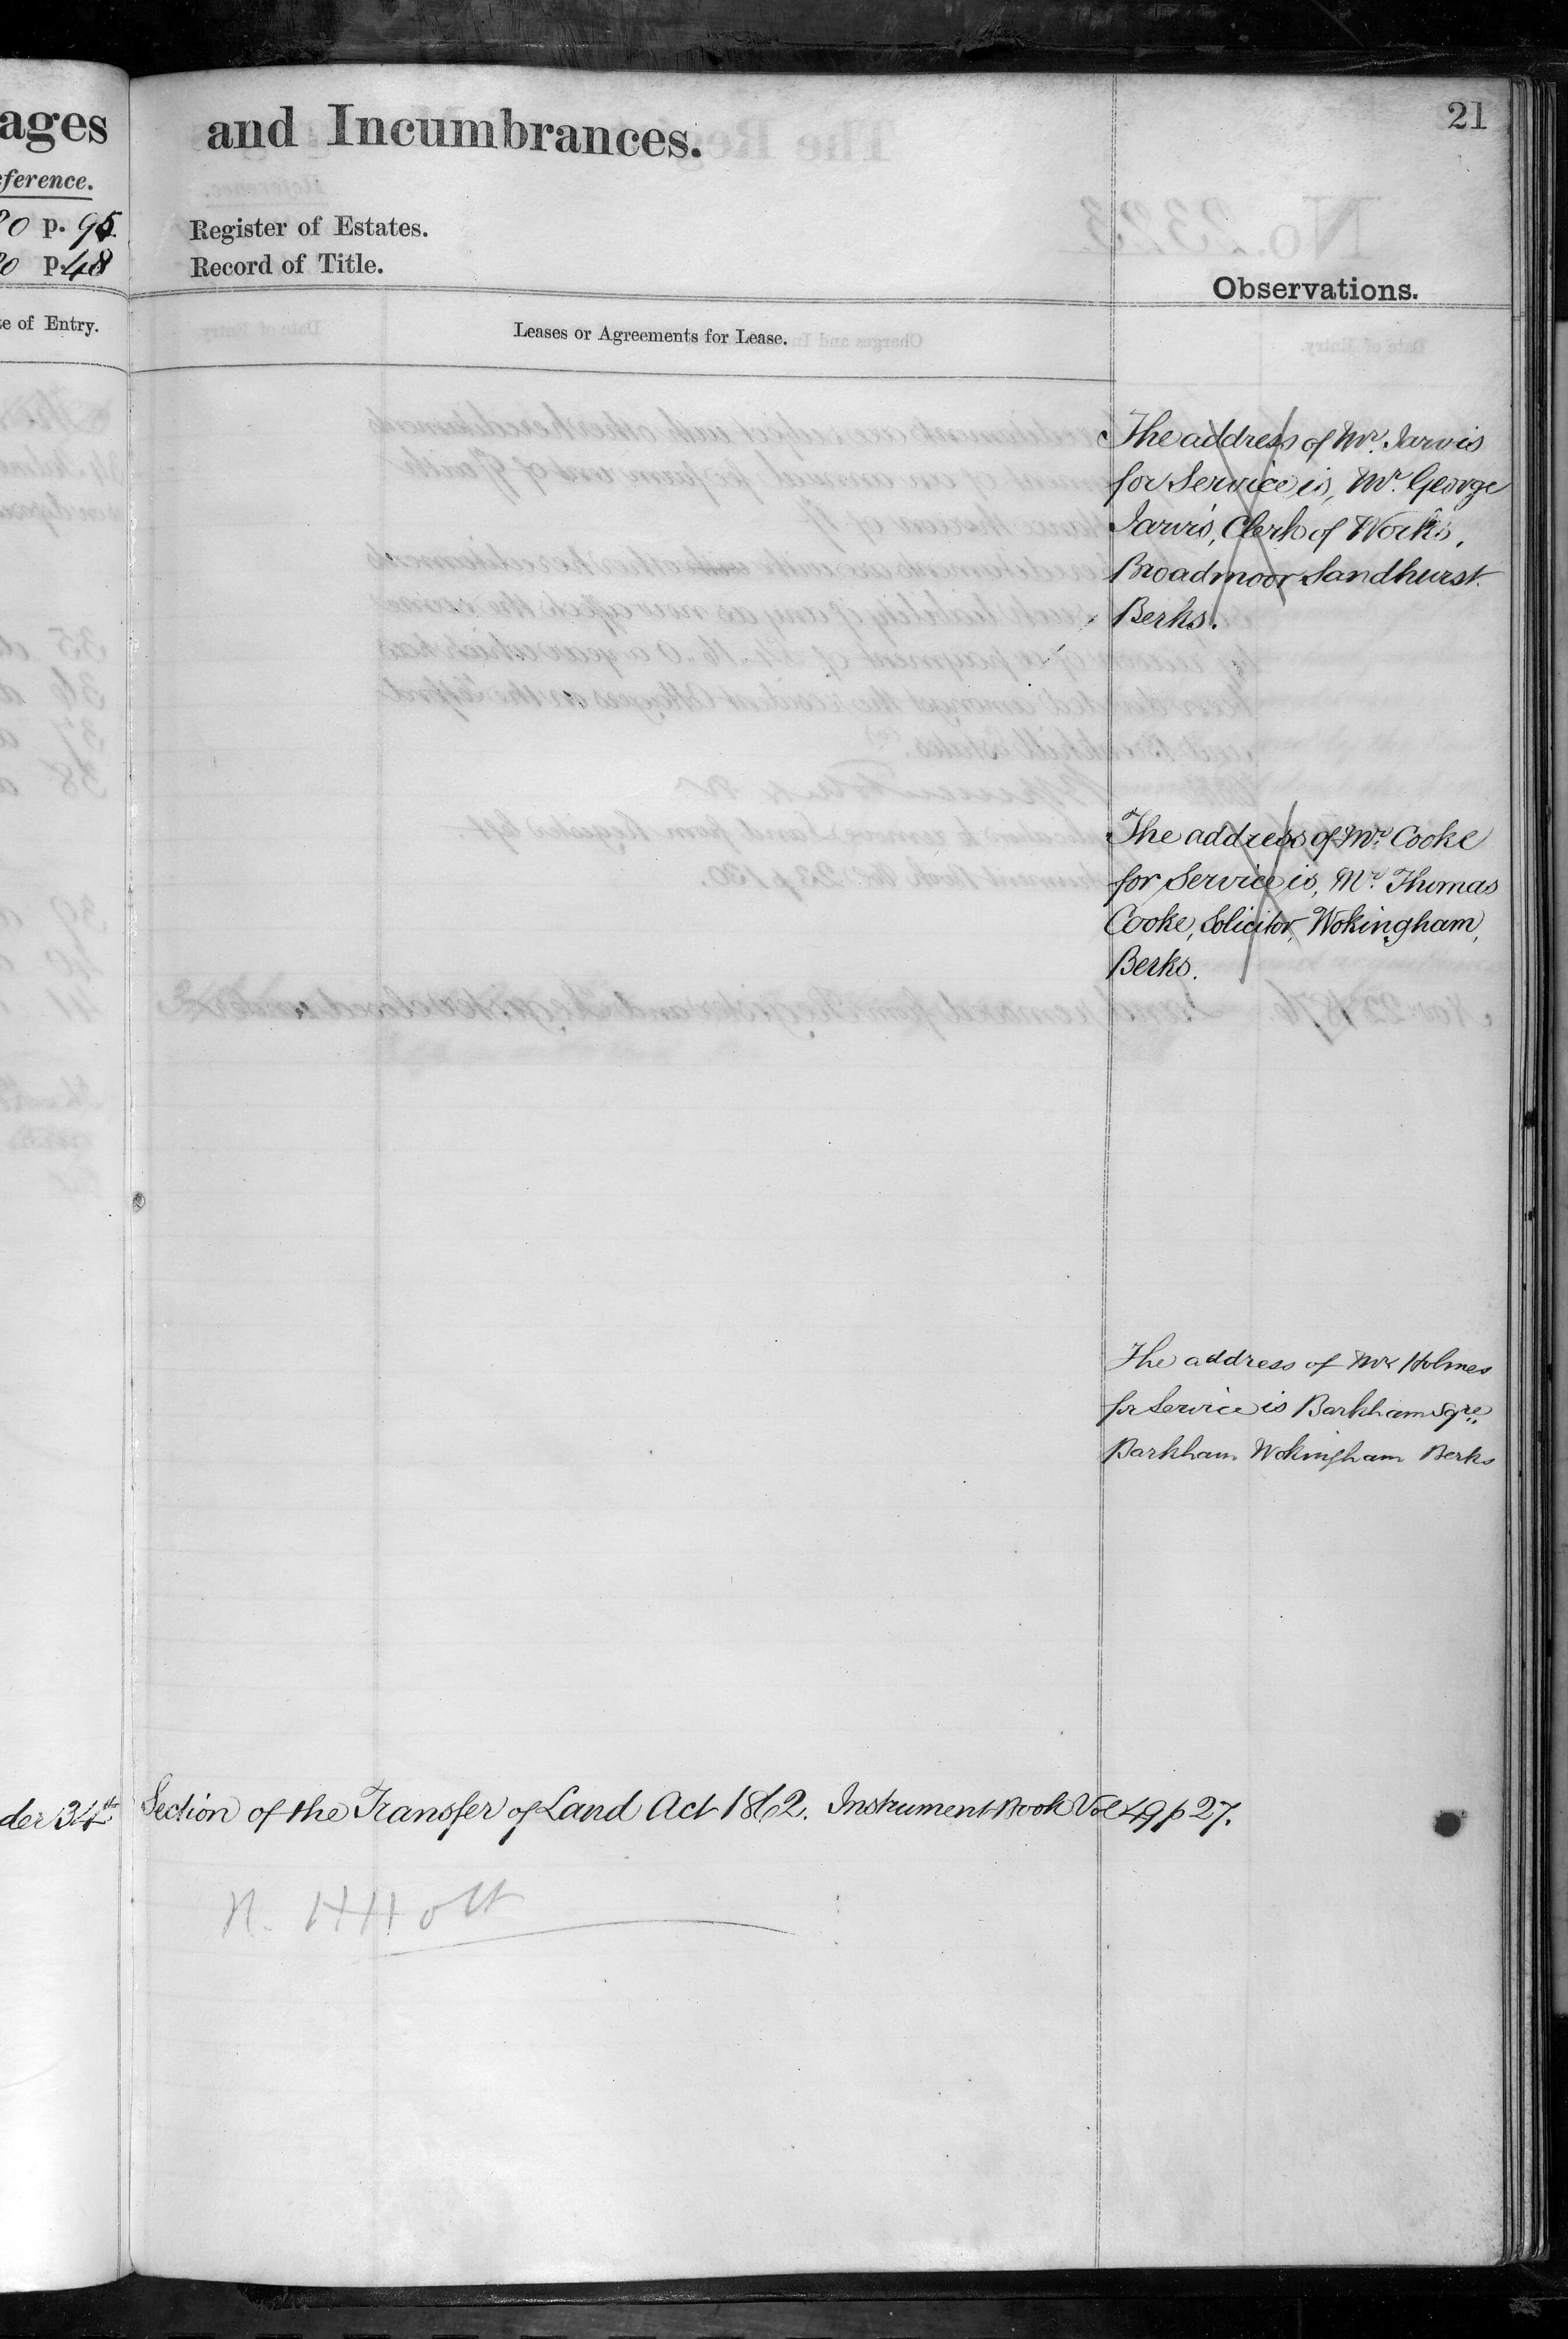 ages
ference.
0 p. 95
0 p. 48
te of Entry.
der 34th
and Incumbrances.
21
Register of Estates.
Record of Title.
Observations.
Leases or Agreements for Lease.
The address of Mr. Jarvis
for Service is, Mr. George
Jarvis, Clerk of Works,
Broadmoor Sandhurst.
Berks.
The address of Mr. Cooke
for Service is, Mr. Thomas
Cooke, Solicitor, Wokingham,
Berks.
The address of Mr Holmes
for Service is Barkham Sqre
Barkham Wokingham Berks
Section of the Transfer of Land Act 1862. Instrument Book Vol 49 p 27.